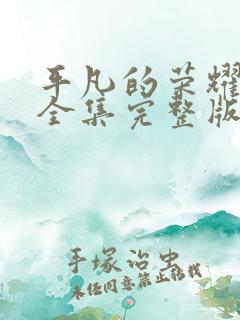 平凡的荣耀
全集完整版
手塚治虫
未经同意禁止转载